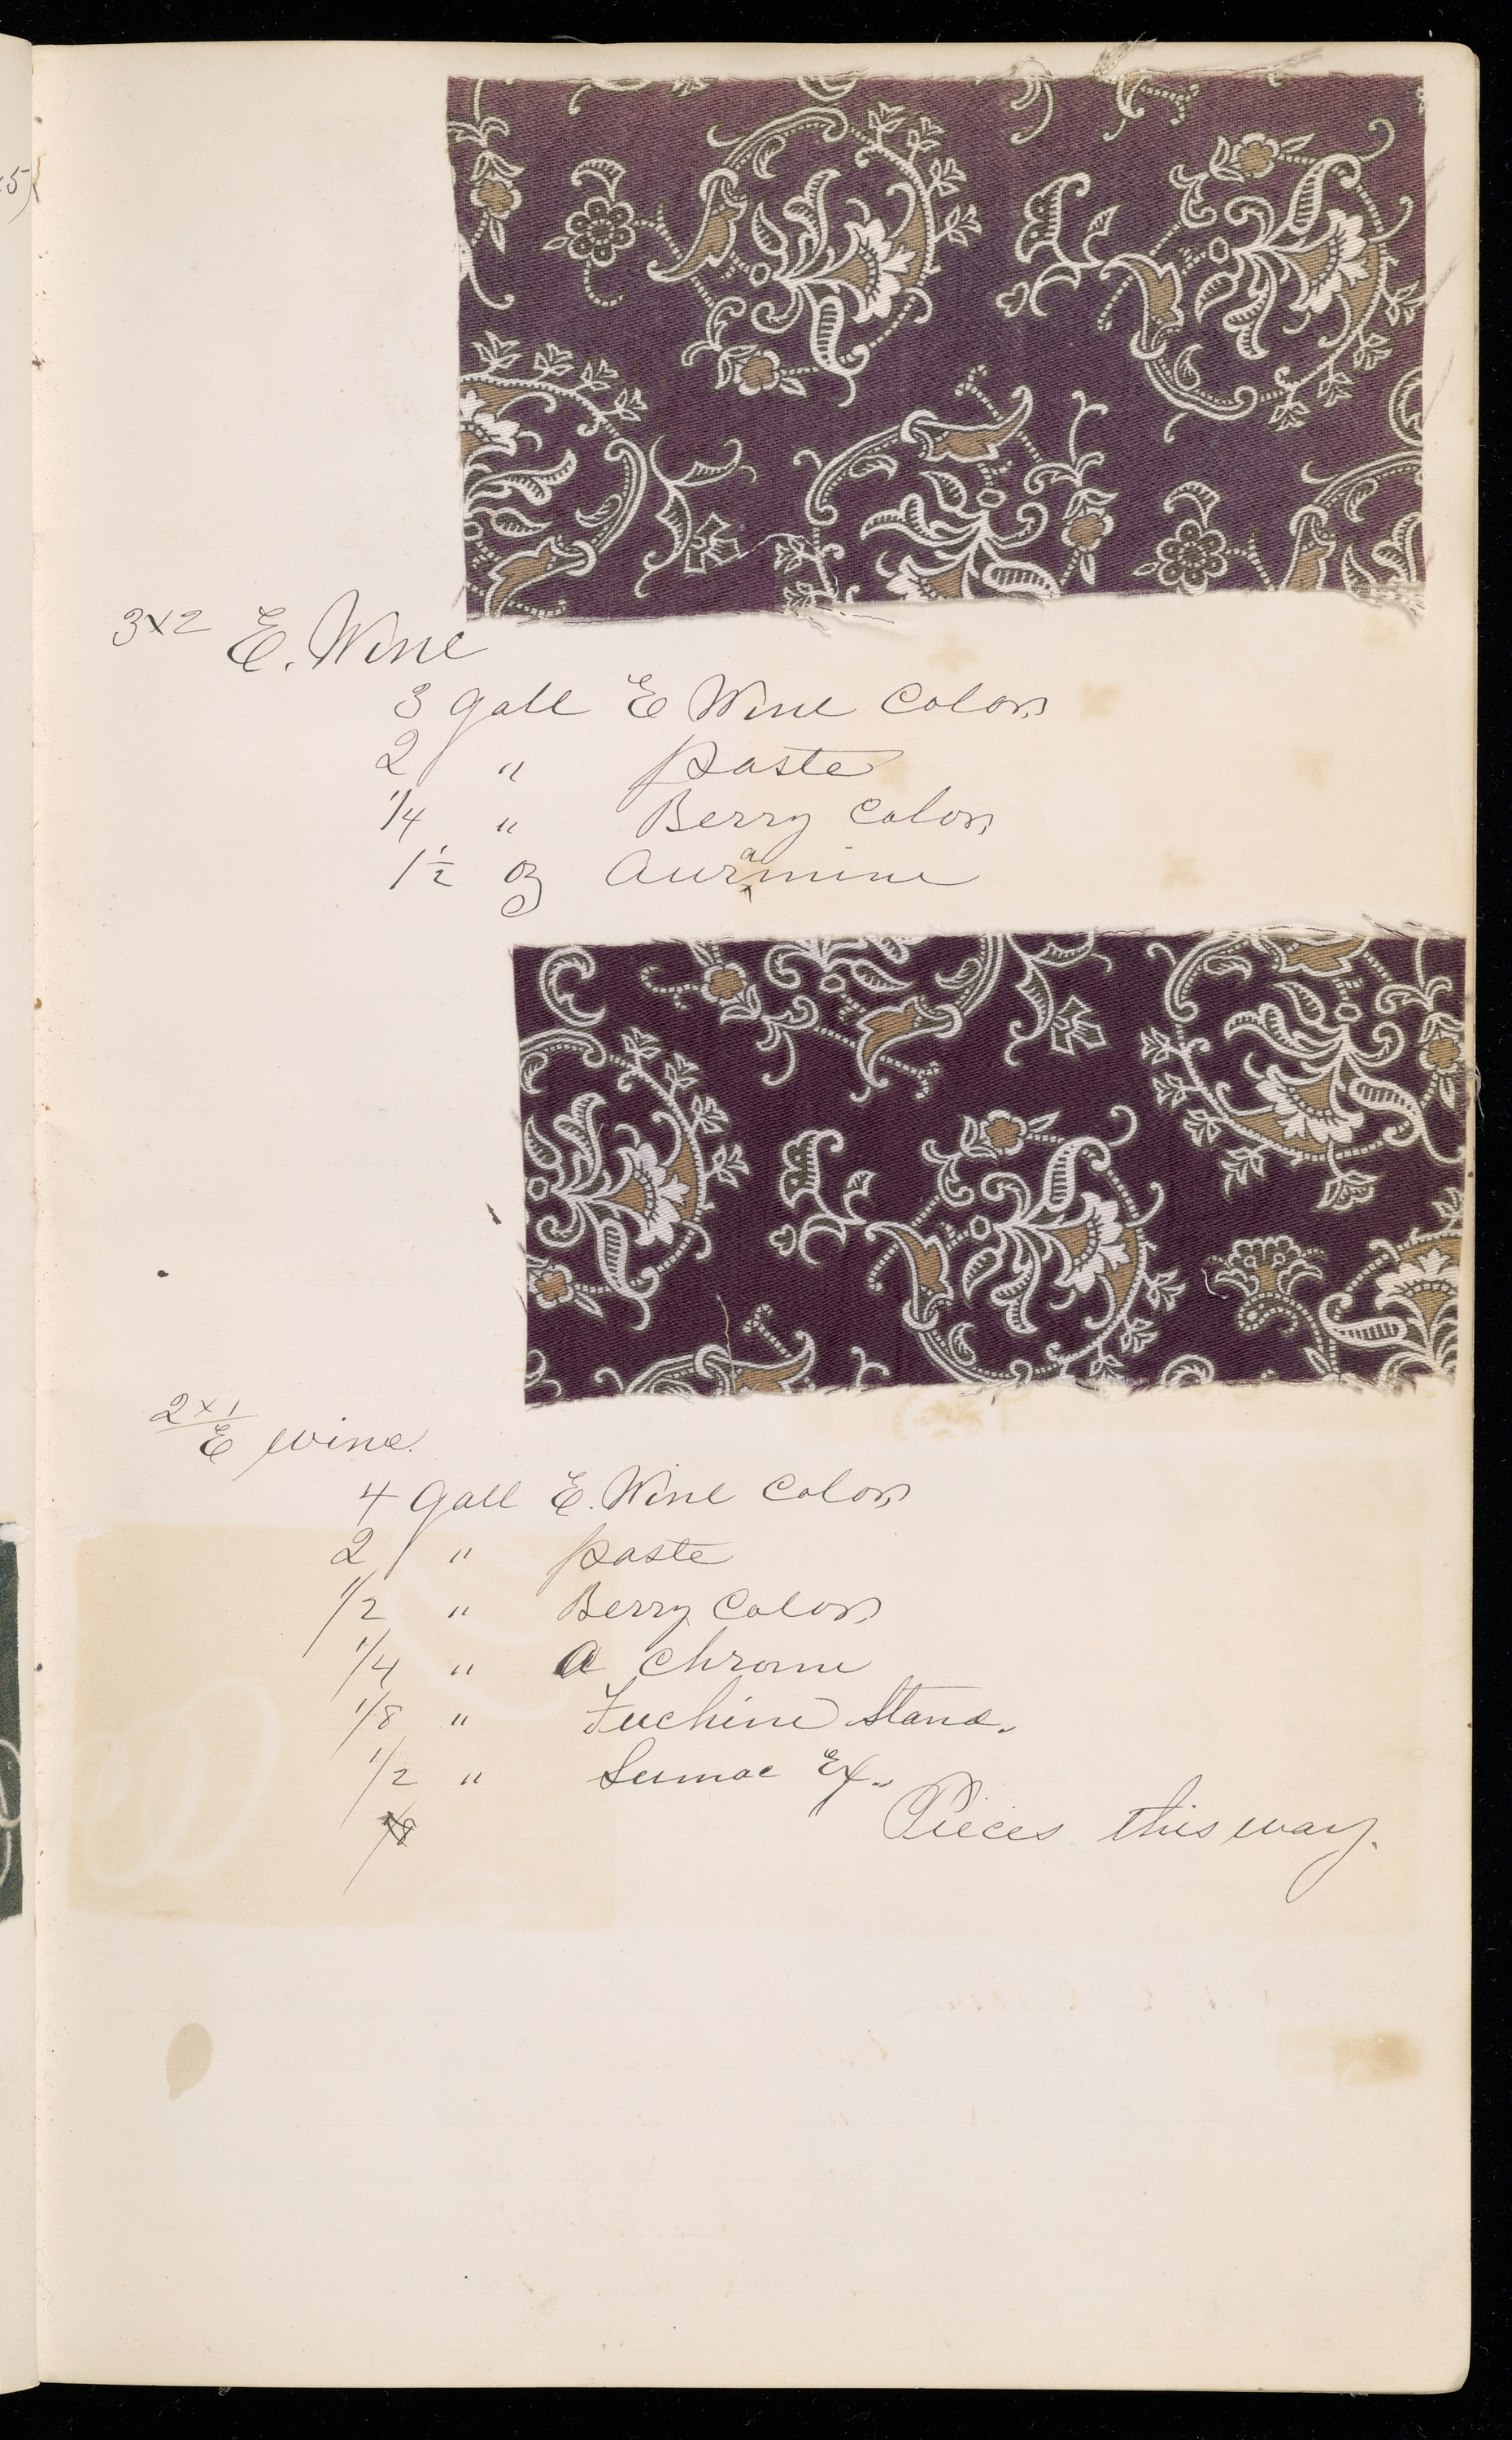 5)
3x2 E. Wine
3 gall E Wine Color
2 " paste
1/4 " Berry Color
1 1/2 oz Auramine
2x1
E wine.
4 gall E. Wine Color
2 " paste
1/2 " Berry Color
1/4 " a Chrome
1/8 " Fuchine Stand.
1/2 " Sumac Ex.
1/8
Pieces this way.